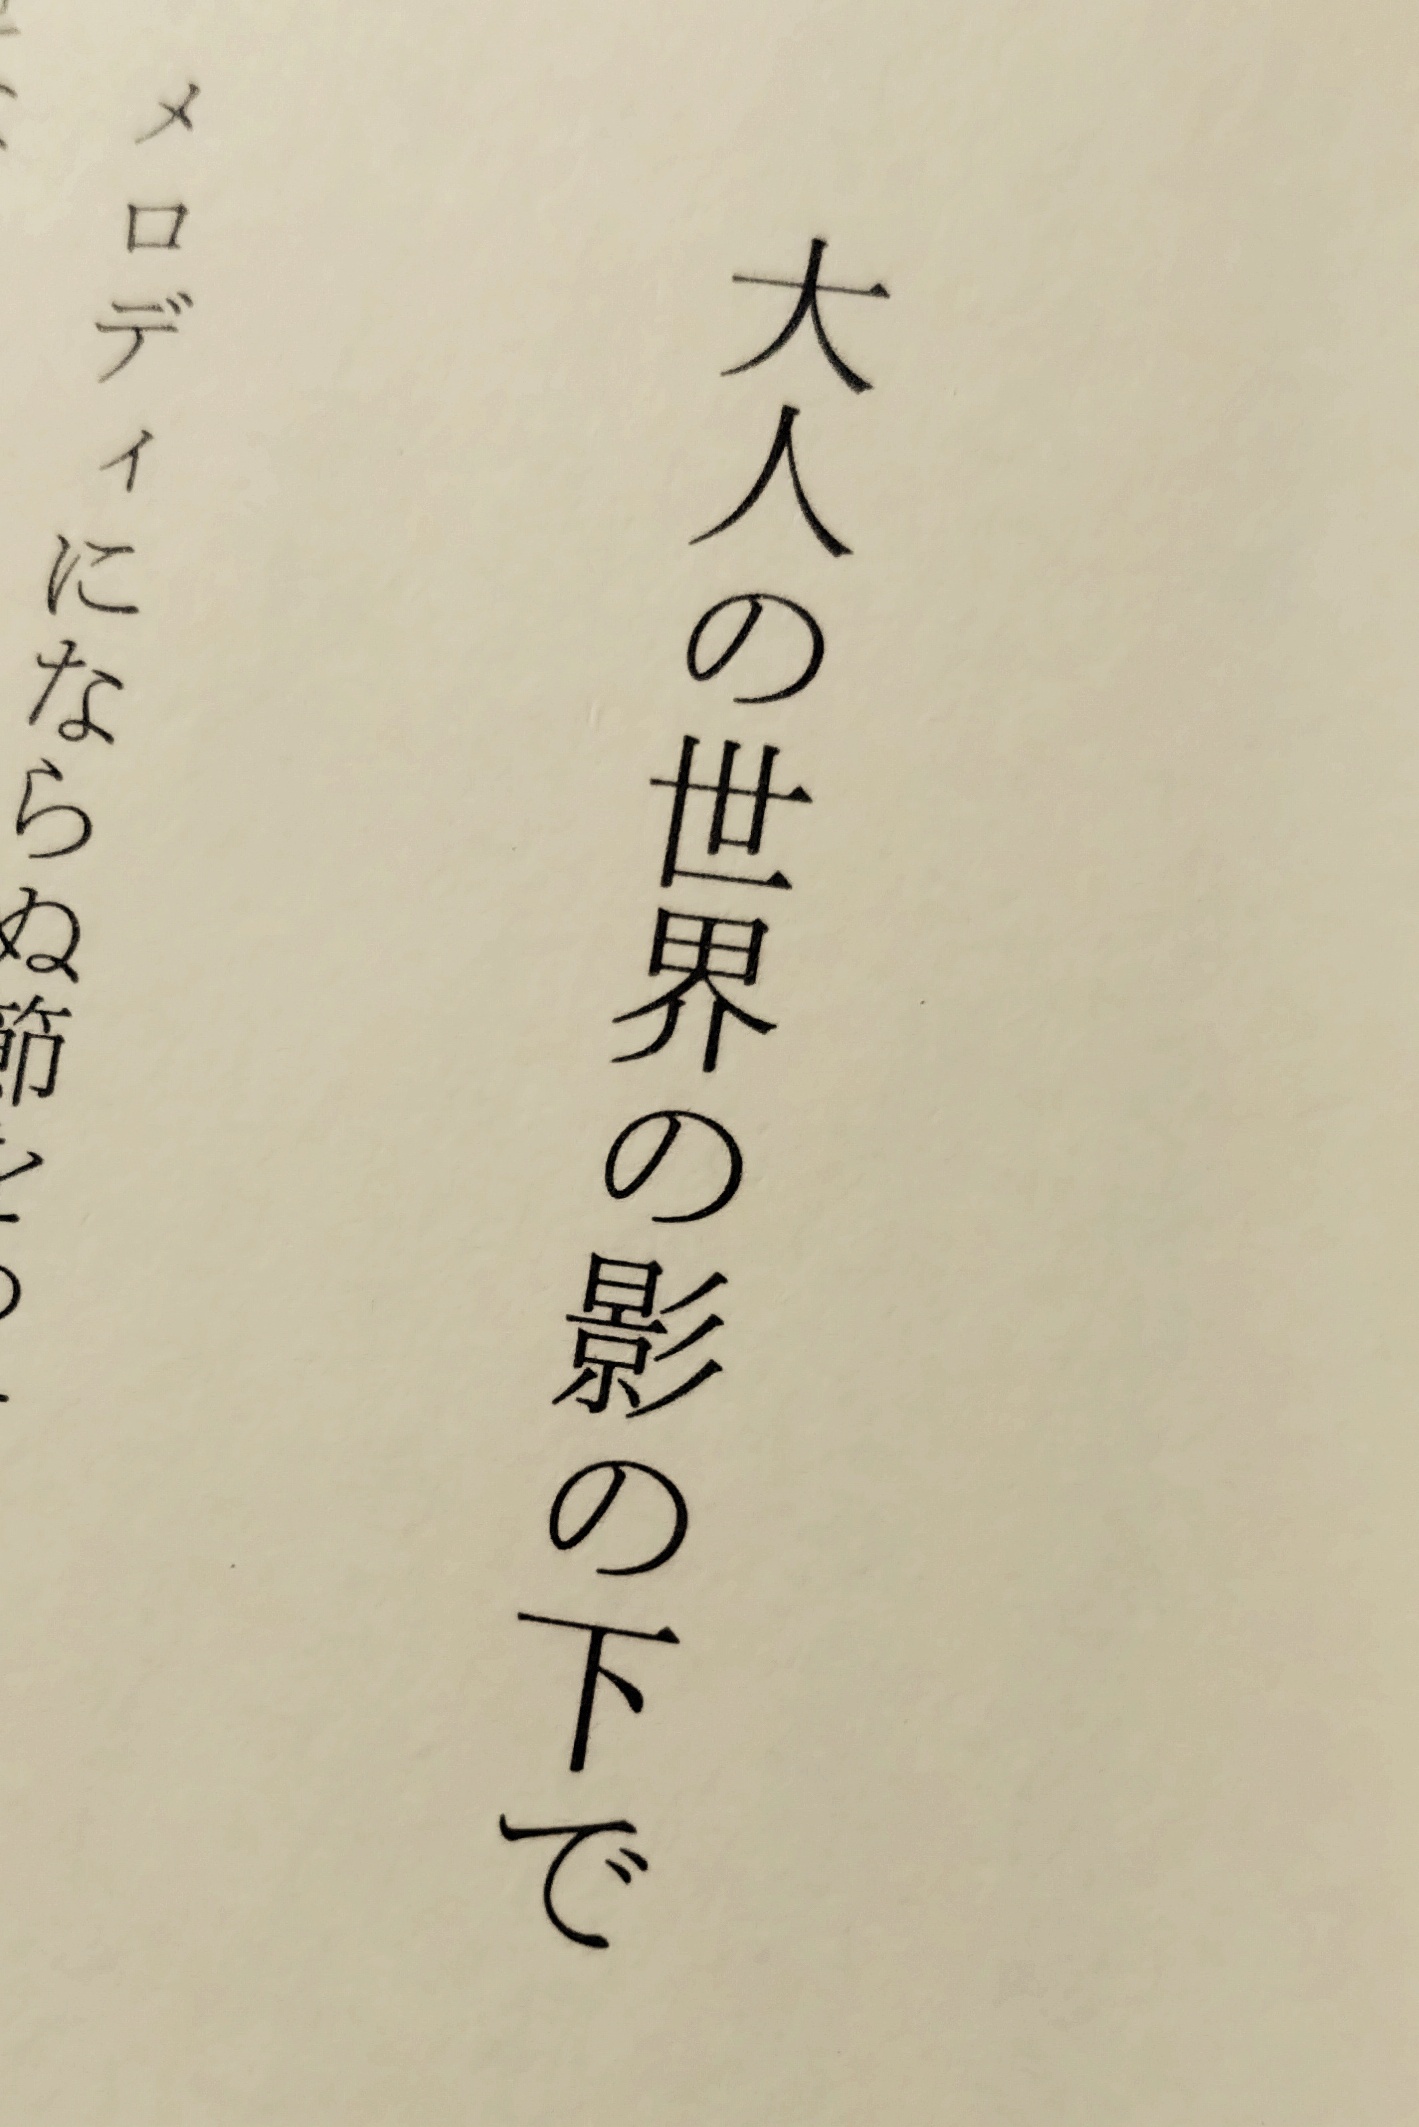 大人の世界の影の下で
メロディにならぬ節をつ